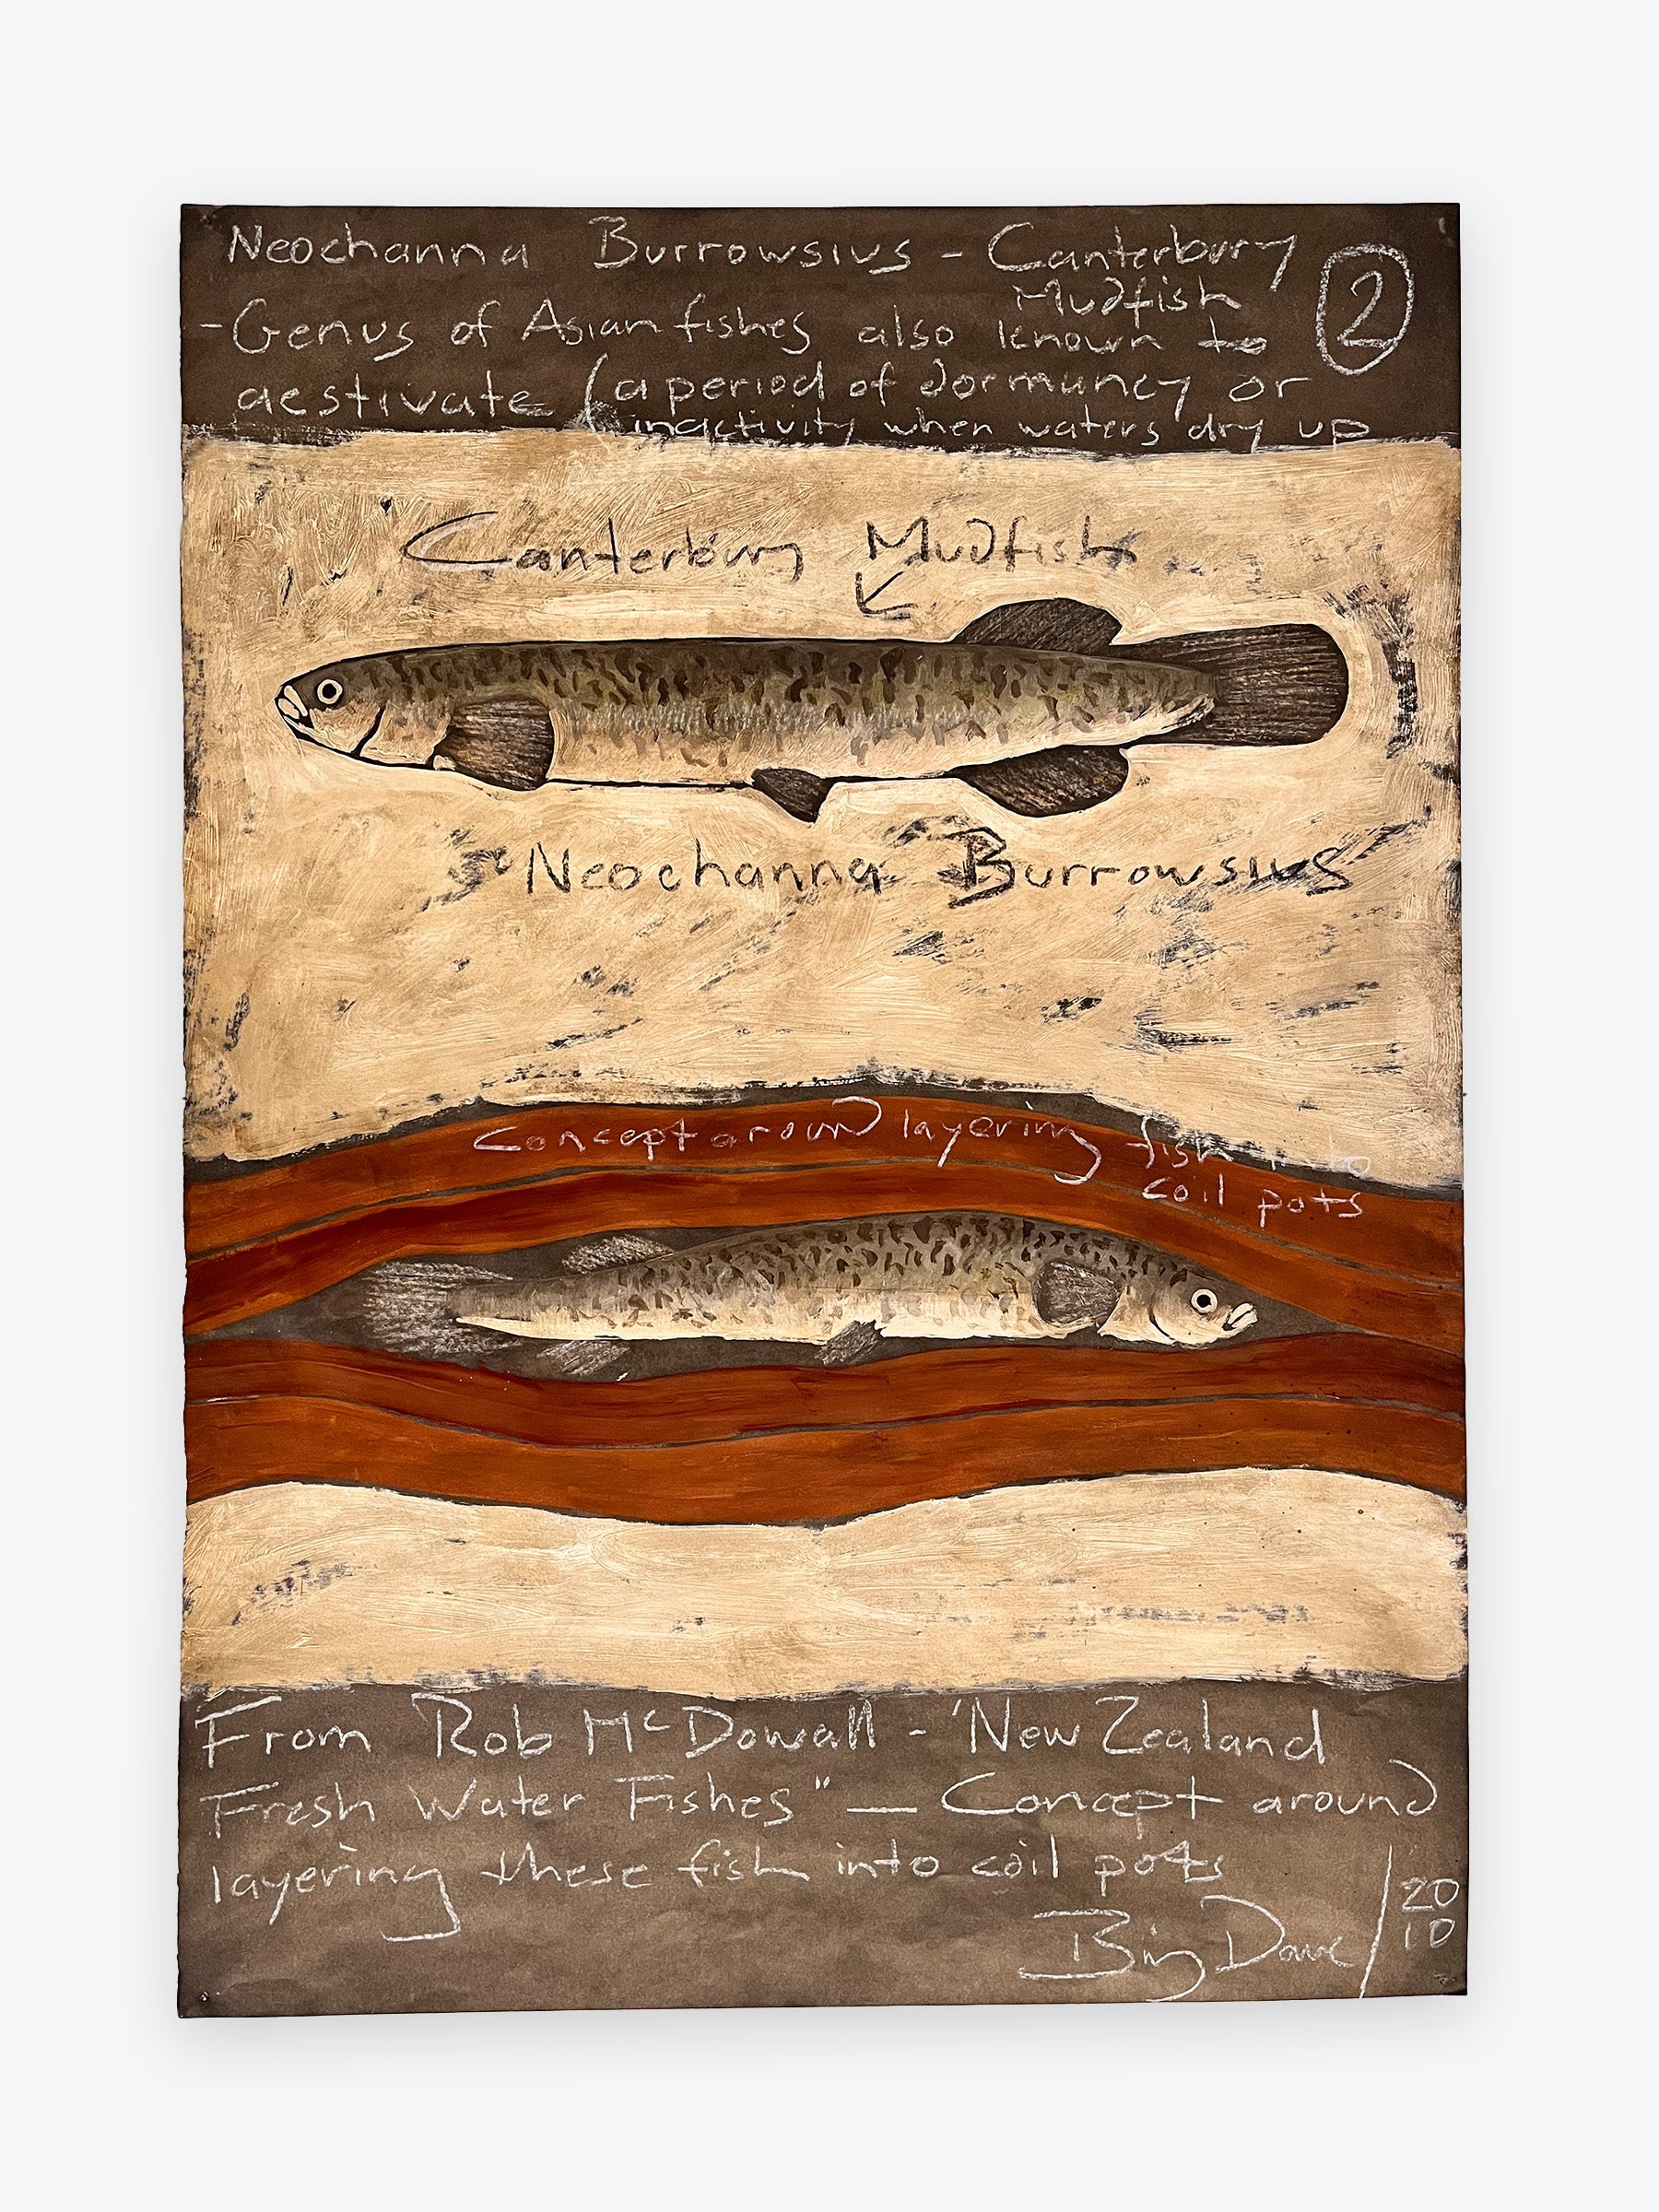 Neochanna Burrowsius - Canterbury
Mudfish
2
- Genus of Asian fishes also known to
aestivate (a period of dormuncy or
inactivity when waters dry up
Canterbury Mudfish
Neochanna Burrowsius
Concept around layering fish into
coil pots
From Rob McDowall - 'New Zealand
Fresh Water Fishes" — Concept around
layering these fish into coil pots
Big Dave / 20
10